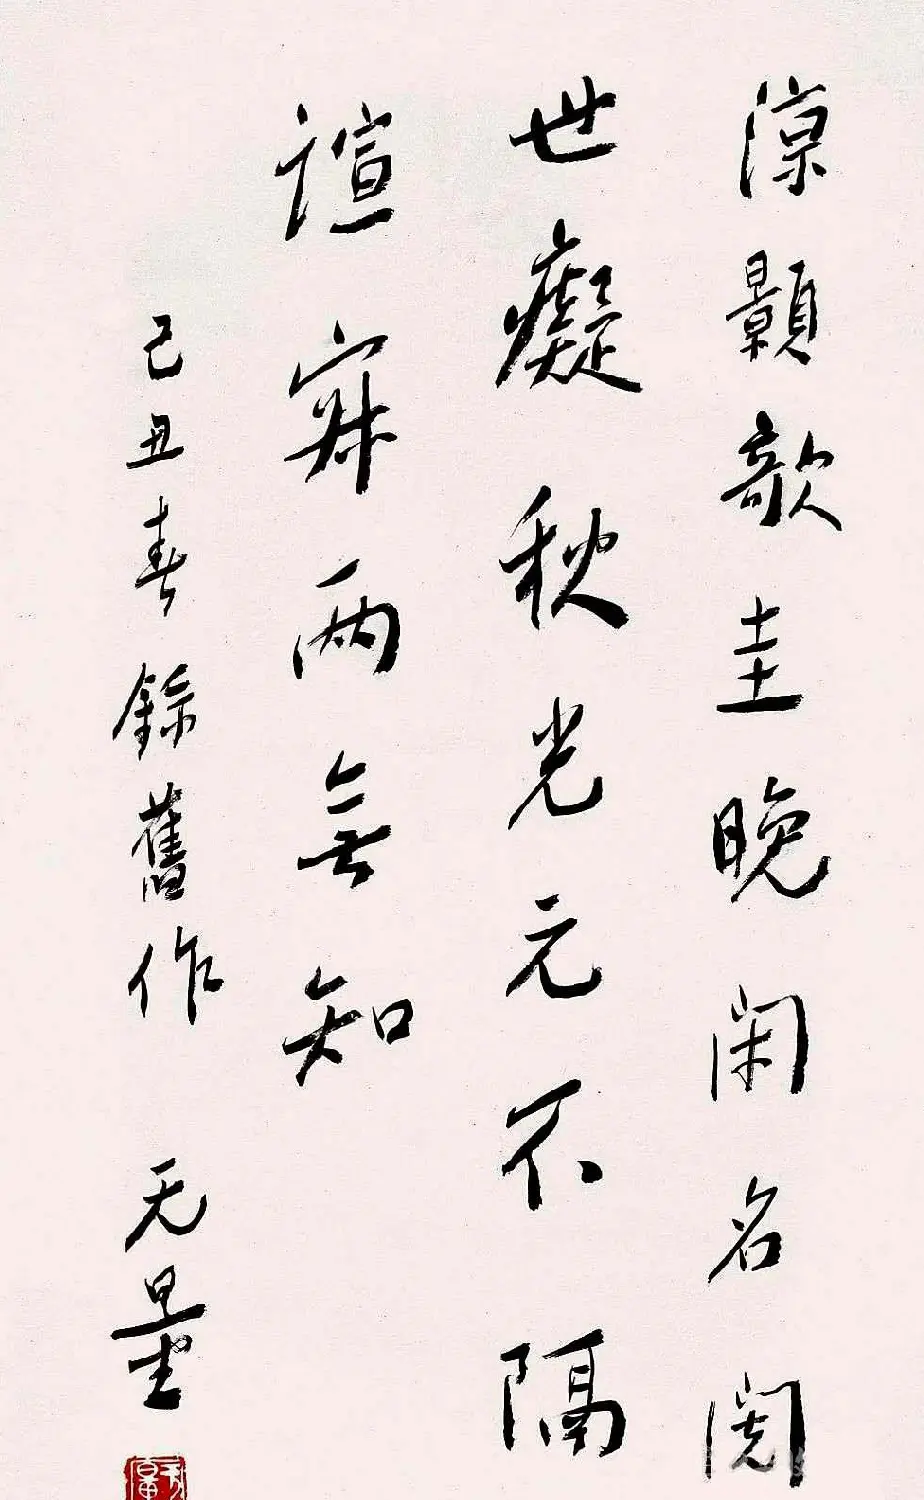 涼顥歆圭晚閑名閱
世癡秋光元不隔
諠寂兩無知
己丑春餘舊作 无量